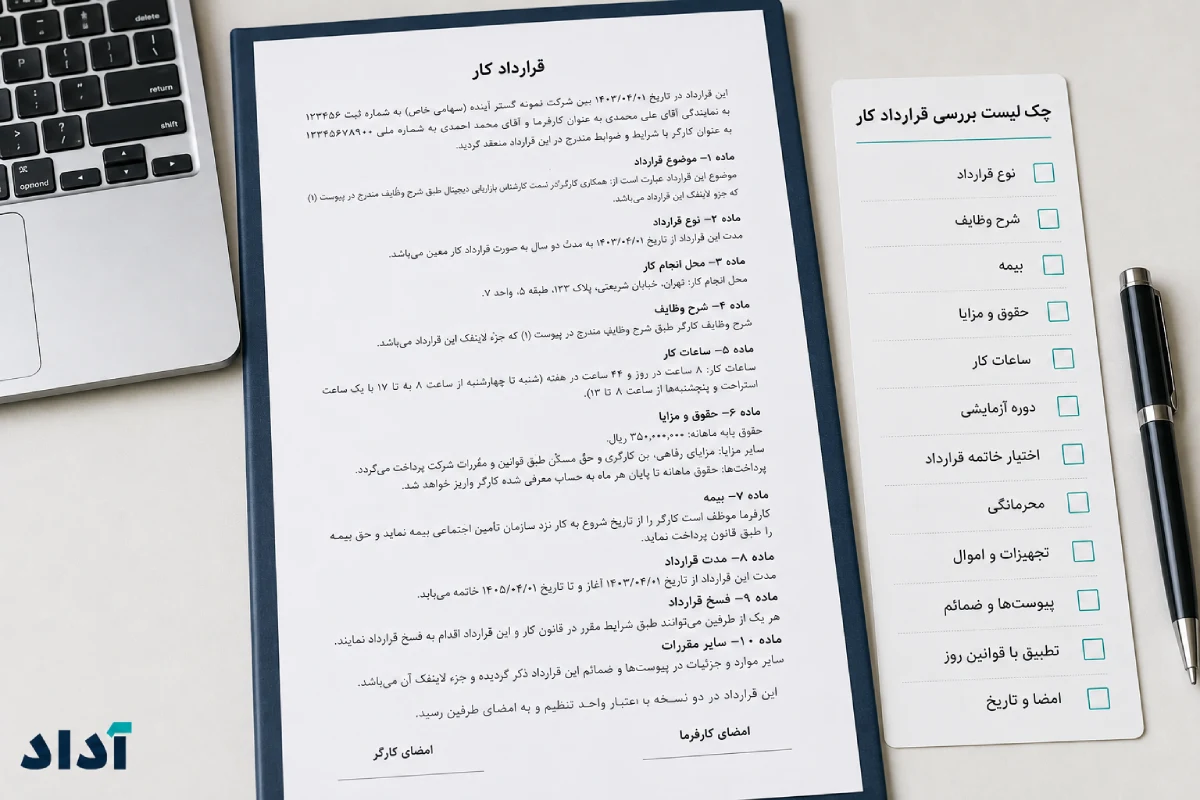 delete
P
{ [
} ]
| \
return
: ;
" '
shift
> .
? /
⌘
opnond
قرارداد کار
این قرارداد در تاریخ ۱۴۰۳/۰۴/۰۱ بین شرکت نمونه گستر آینده (سهامی خاص) به شماره ثبت ۱۲۳۴۵۶
به نمایندگی آقای علی محمدی به عنوان کارفرما و آقای محمد احمدی به شماره ملی ۱۲۳۴۵۶۷۸۹۰۰
به عنوان کارگر با شرایط و ضوابط مندرج در این قرارداد منعقد گردید.
ماده ۱– موضوع قرارداد
موضوع این قرارداد عبارت است از: همکاری کارگر در سمت کارشناس بازاریابی دیجیتال طبق شرح وظایف مندرج در پیوست (۱)
که جزو لاینفک این قرارداد می‌باشد.
ماده ۲– نوع قرارداد
مدت این قرارداد از تاریخ ۱۴۰۳/۰۴/۰۱ به مدت دو سال به صورت قرارداد کار معین می‌باشد.
ماده ۳– محل انجام کار
محل انجام کار: تهران، خیابان شریعتی، پلاک ۱۳۳، طبقه ۵، واحد ۷.
ماده ۴– شرح وظایف
شرح وظایف کارگر طبق شرح وظایف مندرج در پیوست (۱) که جزء لاینفک این قرارداد می‌باشد.
ماده ۵– ساعات کار
ساعات کار: ۸ ساعت در روز و ۴۴ ساعت در هفته (شنبه تا چهارشنبه از ساعت ۸ به تا ۱۷ با یک ساعت
استراحت و پنجشنبه‌ها از ساعت ۸ تا ۱۳).
ماده ۶– حقوق و مزایا
حقوق پایه ماهانه: ۳۵۰,۰۰۰,۰۰۰ ریال.
سایر مزایا: مزایای رفاهی، بن کارگری و حق مسکن طبق قوانین و مقررات شرکت پرداخت می‌گردد.
پرداخت‌ها: حقوق ماهانه تا پایان هر ماه به حساب معرفی شده کارگر واریز خواهد شد.
ماده ۷– بیمه
کارفرما موظف است کارگر را از تاریخ شروع به کار نزد سازمان تأمین اجتماعی بیمه نماید و حق بیمه
را طبق قانون پرداخت نماید.
ماده ۸– مدت قرارداد
مدت این قرارداد از تاریخ ۱۴۰۳/۰۴/۰۱ آغاز و تا تاریخ ۱۴۰۵/۰۴/۰۱ خاتمه می‌یابد.
ماده ۹– فسخ قرارداد
هر یک از طرفین می‌توانند طبق شرایط مقرر در قانون کار و این قرارداد اقدام به فسخ قرارداد نمایند.
ماده ۱۰– سایر مقررات
سایر موارد و جزئیات در پیوست‌ها و ضمائم این قرارداد ذکر گردیده و جزء لاینفک آن می‌باشد.
این قرارداد در دو نسخه با اعتبار واحد تنظیم و به امضای طرفین رسید.
امضای کارفرما
امضای کارگر
چک لیست بررسی قرارداد کار
نوع قرارداد
شرح وظایف
بیمه
حقوق و مزایا
ساعات کار
دوره آزمایشی
اختیار خاتمه قرارداد
محرمانگی
تجهیزات و اموال
پیوست‌ها و ضمائم
تطبیق با قوانین روز
امضا و تاریخ
آداد